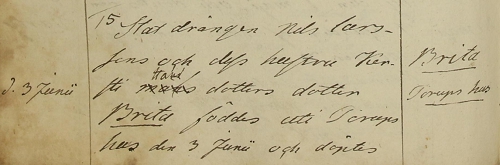 15 Stat drängen Nils Lars-
sons och dess hustru Ker-
sti dotters dotter
Brita föddes uti Torups
hus den 3 Junii och döptes
d. 3 Junii
Brita
Torups hus